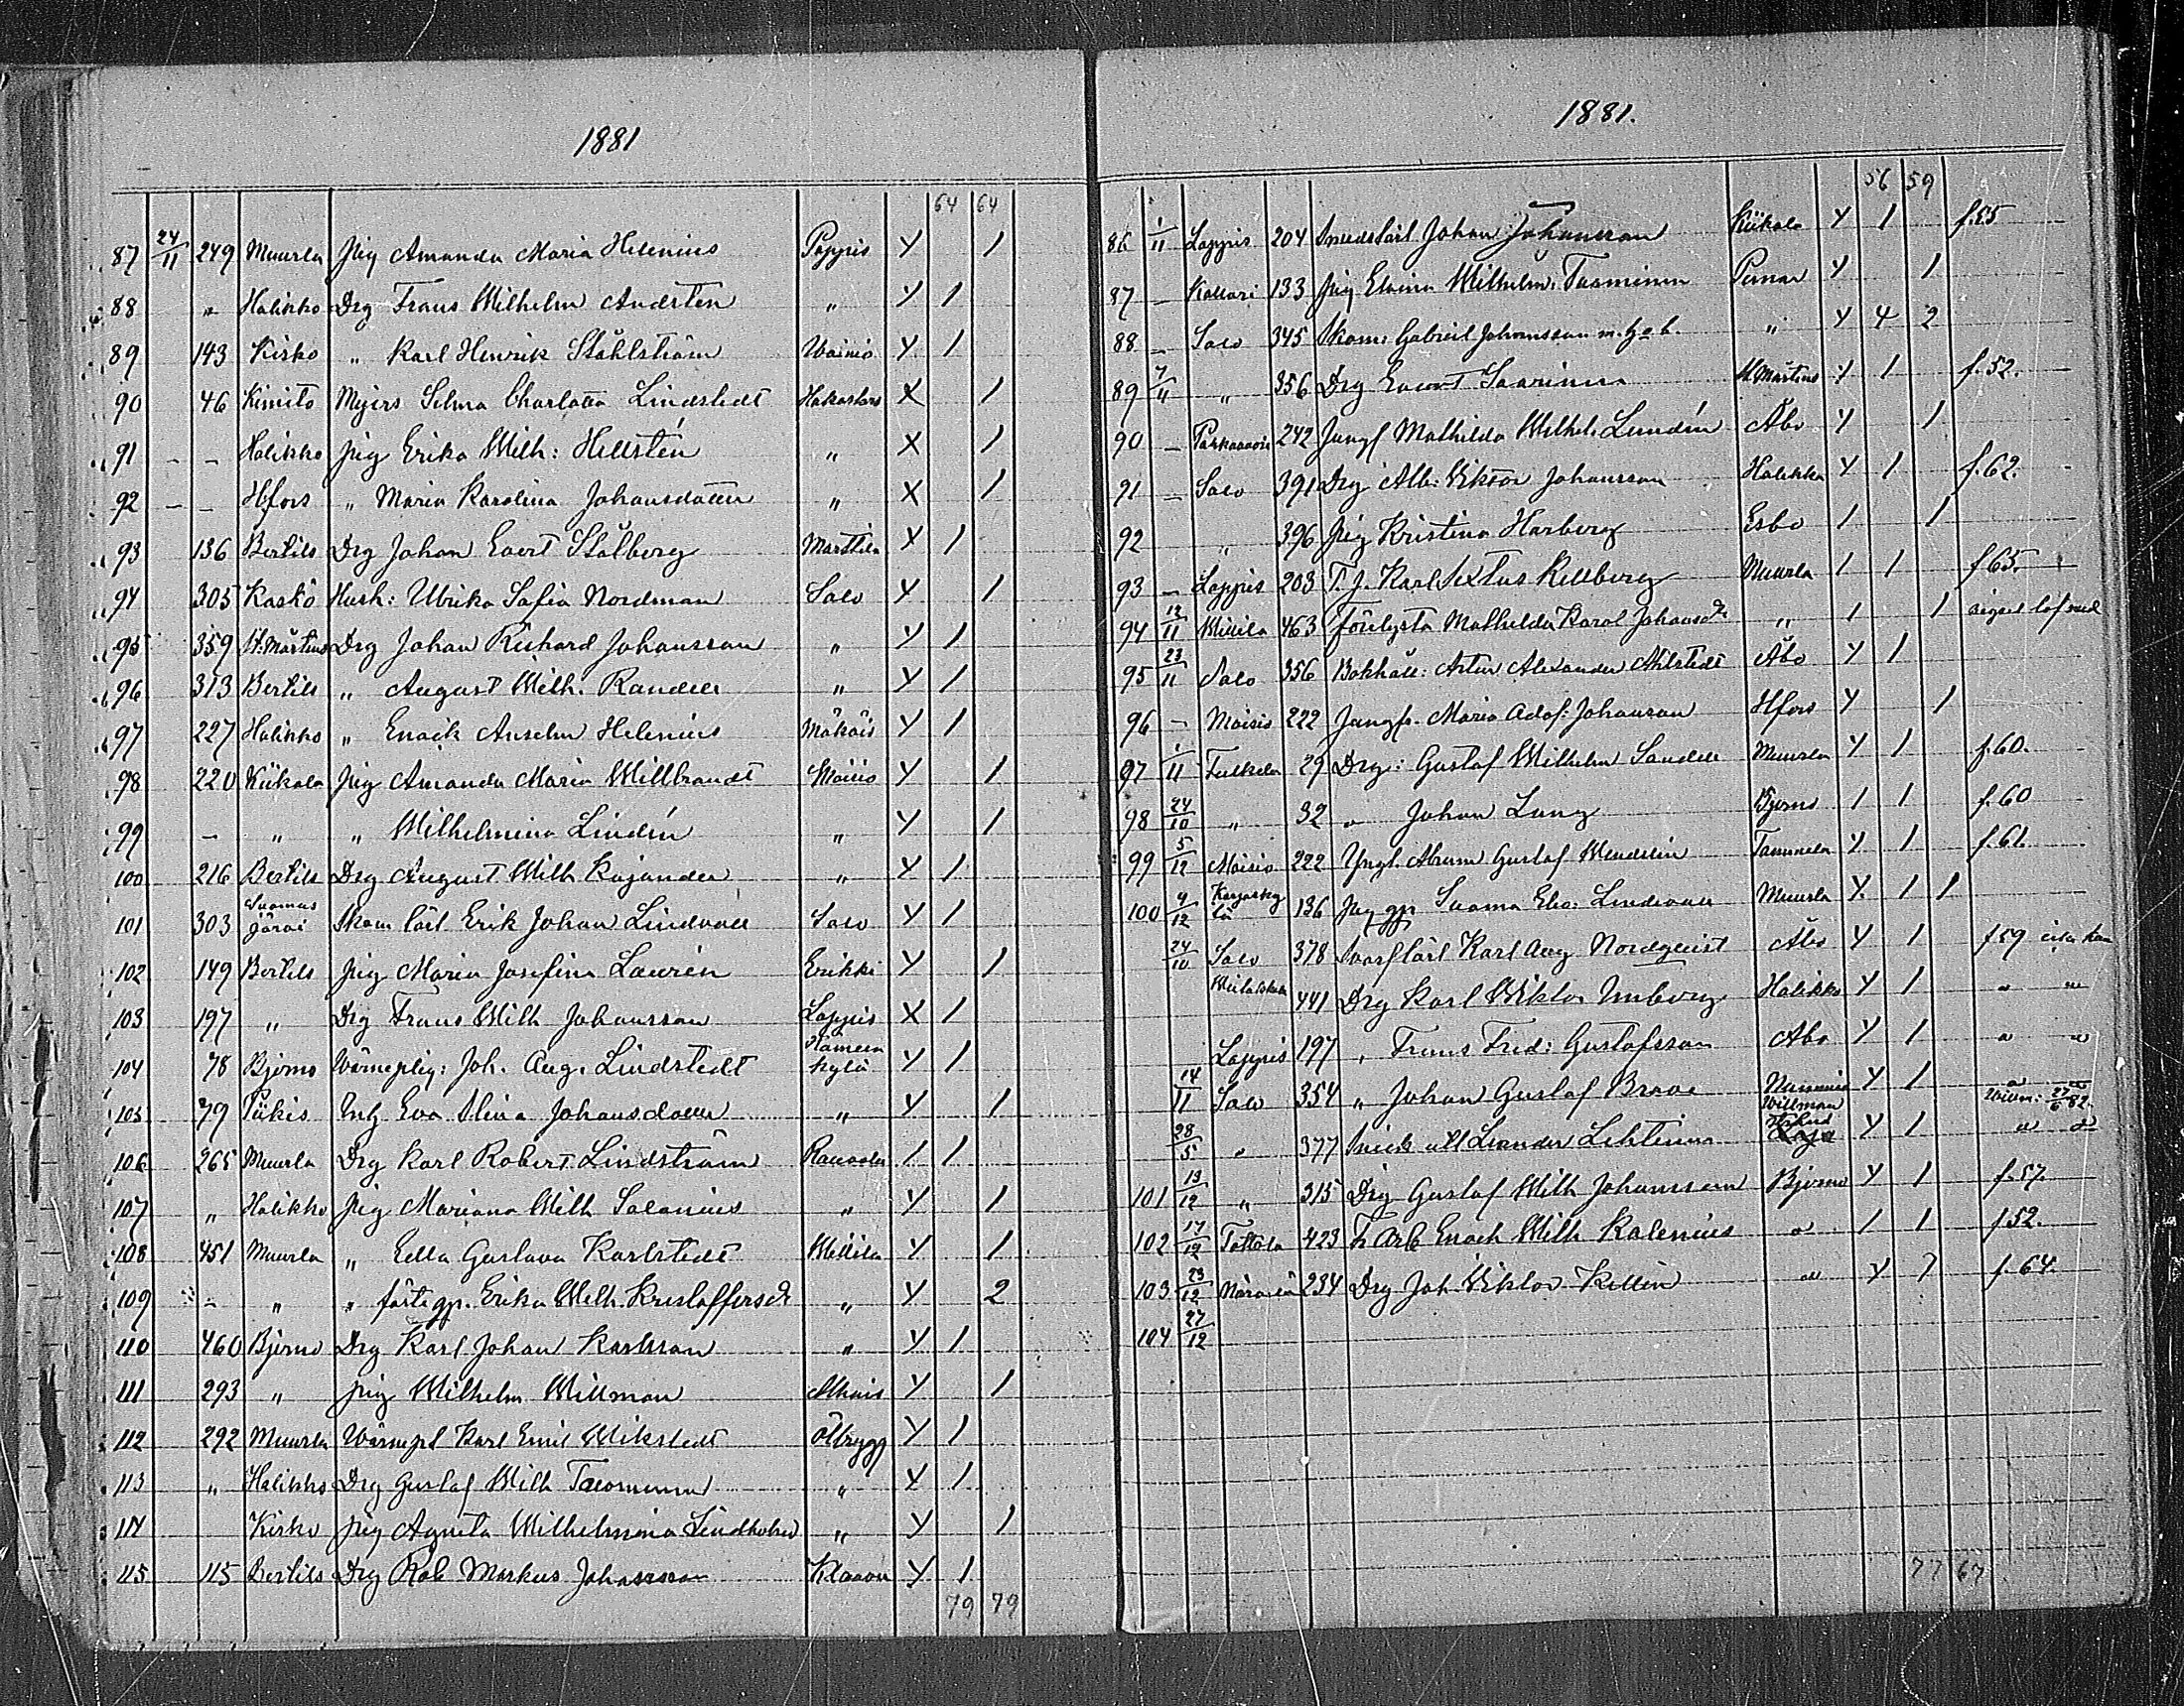 1881
64 64
87 24/11 249 Muurla Pig Amanda Maria Helenius Pappis Y 1
88 " Halikko Drg Frans Wilhelm Andsten " Y 1
89 143 Kisko " Karl Henrik Ståhlström Wainio Y 1
90 46 Kimito Mejers Selma Charlotta Lindstedt X 1
91 - - Halikko Pig Erika Wilh: Hellstén " X 1
92 - - Hfors " Maria Karolina Johansdotter " X 1
93 136 Bertils Drg Johan Evert Stålberg Marttila X 1
94 305 Kaskö Hush: Ulrika Sofia Nordman Salo Y 1
95 359 St. Mårtens Drg Johan Richard Johansson " Y 1
96 313 Bertils " August Wilh. Randell " Y 1
97 227 Halikko " Enoik Anselm Helenius Y 1
98 220 Kiikala Pig Amanda Maria Willbrandt Moisio Y 1
99 - " " Wilhelmina Lindén " Y 1
100 216 Bertils Drg August Wilh Kajander " Y 1
101 303 Suomusjärvi Skom lärl Erik Johan Lindvall Salo Y 1
102 149 Bertils Pig Maria Josefina Laurén Erikki Y 1
103 197 " Drg Frans Wilh Johansson Lappis X 1
104 78 Bjerno Wärneplig: Joh. Aug. Lindstedt Y 1
105 79 Pikis Enk Eva Stina Johansdotter " Y 1
106 265 Muurla Drg Karl Robert Lindström 1 1
107 " Halikko Pig Mariana Wilh Salonius " Y 1
108 451 Muurla " Edla Gustava Karlstedt Millila Y 1
109 - " " förlegp. Erika Wilh. Kristoffersdr " Y 2
110 460 Bjerno Drg Karl Johan Karlsson " Y 1
111 293 " Pig Wilhelm. Willman Alhais Y 1
112 292 Muurla Wärnepl Karl Emil Wikstedt Ölbrygg Y 1
113 " Halikko Drg Gustaf Wilh Tuominen " X 1
114 Kisko Pig Agneta Wilhelmina Lindholm " Y 1
115 115 Bertils Drg Rob Markus Johansson Y 1
79 79
1881.
56 59
86 1/11 Lappis 204 Smedslärl Johan Johansson Kiikala Y 1 f.55
87 - 133 Pig Elvina Wilhelm. Tuominen Pernar Y 1
88 - Salo 345 Skom: Gabriel Johansson m. h o b. " Y 4 2
89 7/11 " 356 Drg Evert Saarinen St Mårtens Y 1 f.52.
90 - 242 Jungf Mathilda Wilhel. Lundén Åbo Y 1
91 - Salo 391 Drg Alb: Viktor Johansson Halikko Y 1 f.62.
92 " 396 Pig Kristina Harberg Esbo 1 1
93 - Lappis 203 T.J. Karl Sixtus Kellberg Muurla 1 1 f65.
94 12/11 Millila 463 Förlysta Mathilda Karol Johansdr " 1 1
95 23/11 Salo 356 Bokhåll: Artur Alexander Ahlstedt Åbo Y 1
96 - Moisio 222 Jungfr. Maria Adof: Johansson Hfors Y 1
97 1/11 29 Drg: Gustaf Wilhelm Sandell Muurla Y 1 f.60.
98 24/10 " 32 " Johan Lang Bjerno 1 1 f.60
99 5/12 Moisio 222 Yngl. Abram Gustaf Wendelin Tammela Y 1 f.61.
100 9/12 136 Pig gp Suoma Elio: Lindvall Muurla Y 1 1
24/10 Salo 378 Karl Aug Nordqvist Åbo Y 1 f59
441 Drg Karl Wiktor Imberg Halikko Y 1 " "
Lappis 197 " Frans Fred: Gustafsson Åbo Y 1 " "
14/11 Salo 354 " Johan Gustaf Brave Y 1 "
28/5 " 377 Leander Lehtinen Y 1 " "
101 13/12 " 315 Drg Gustaf Wilh Johansson Bjerno Y 1 f.57.
102 17/12 Tottola 423 Enoch Wilh Kalenius " 1 1 f52.
103 23/12 284 Drg Joh Viktor Kellin " Y 7 f.64.
104 27/12
77 67